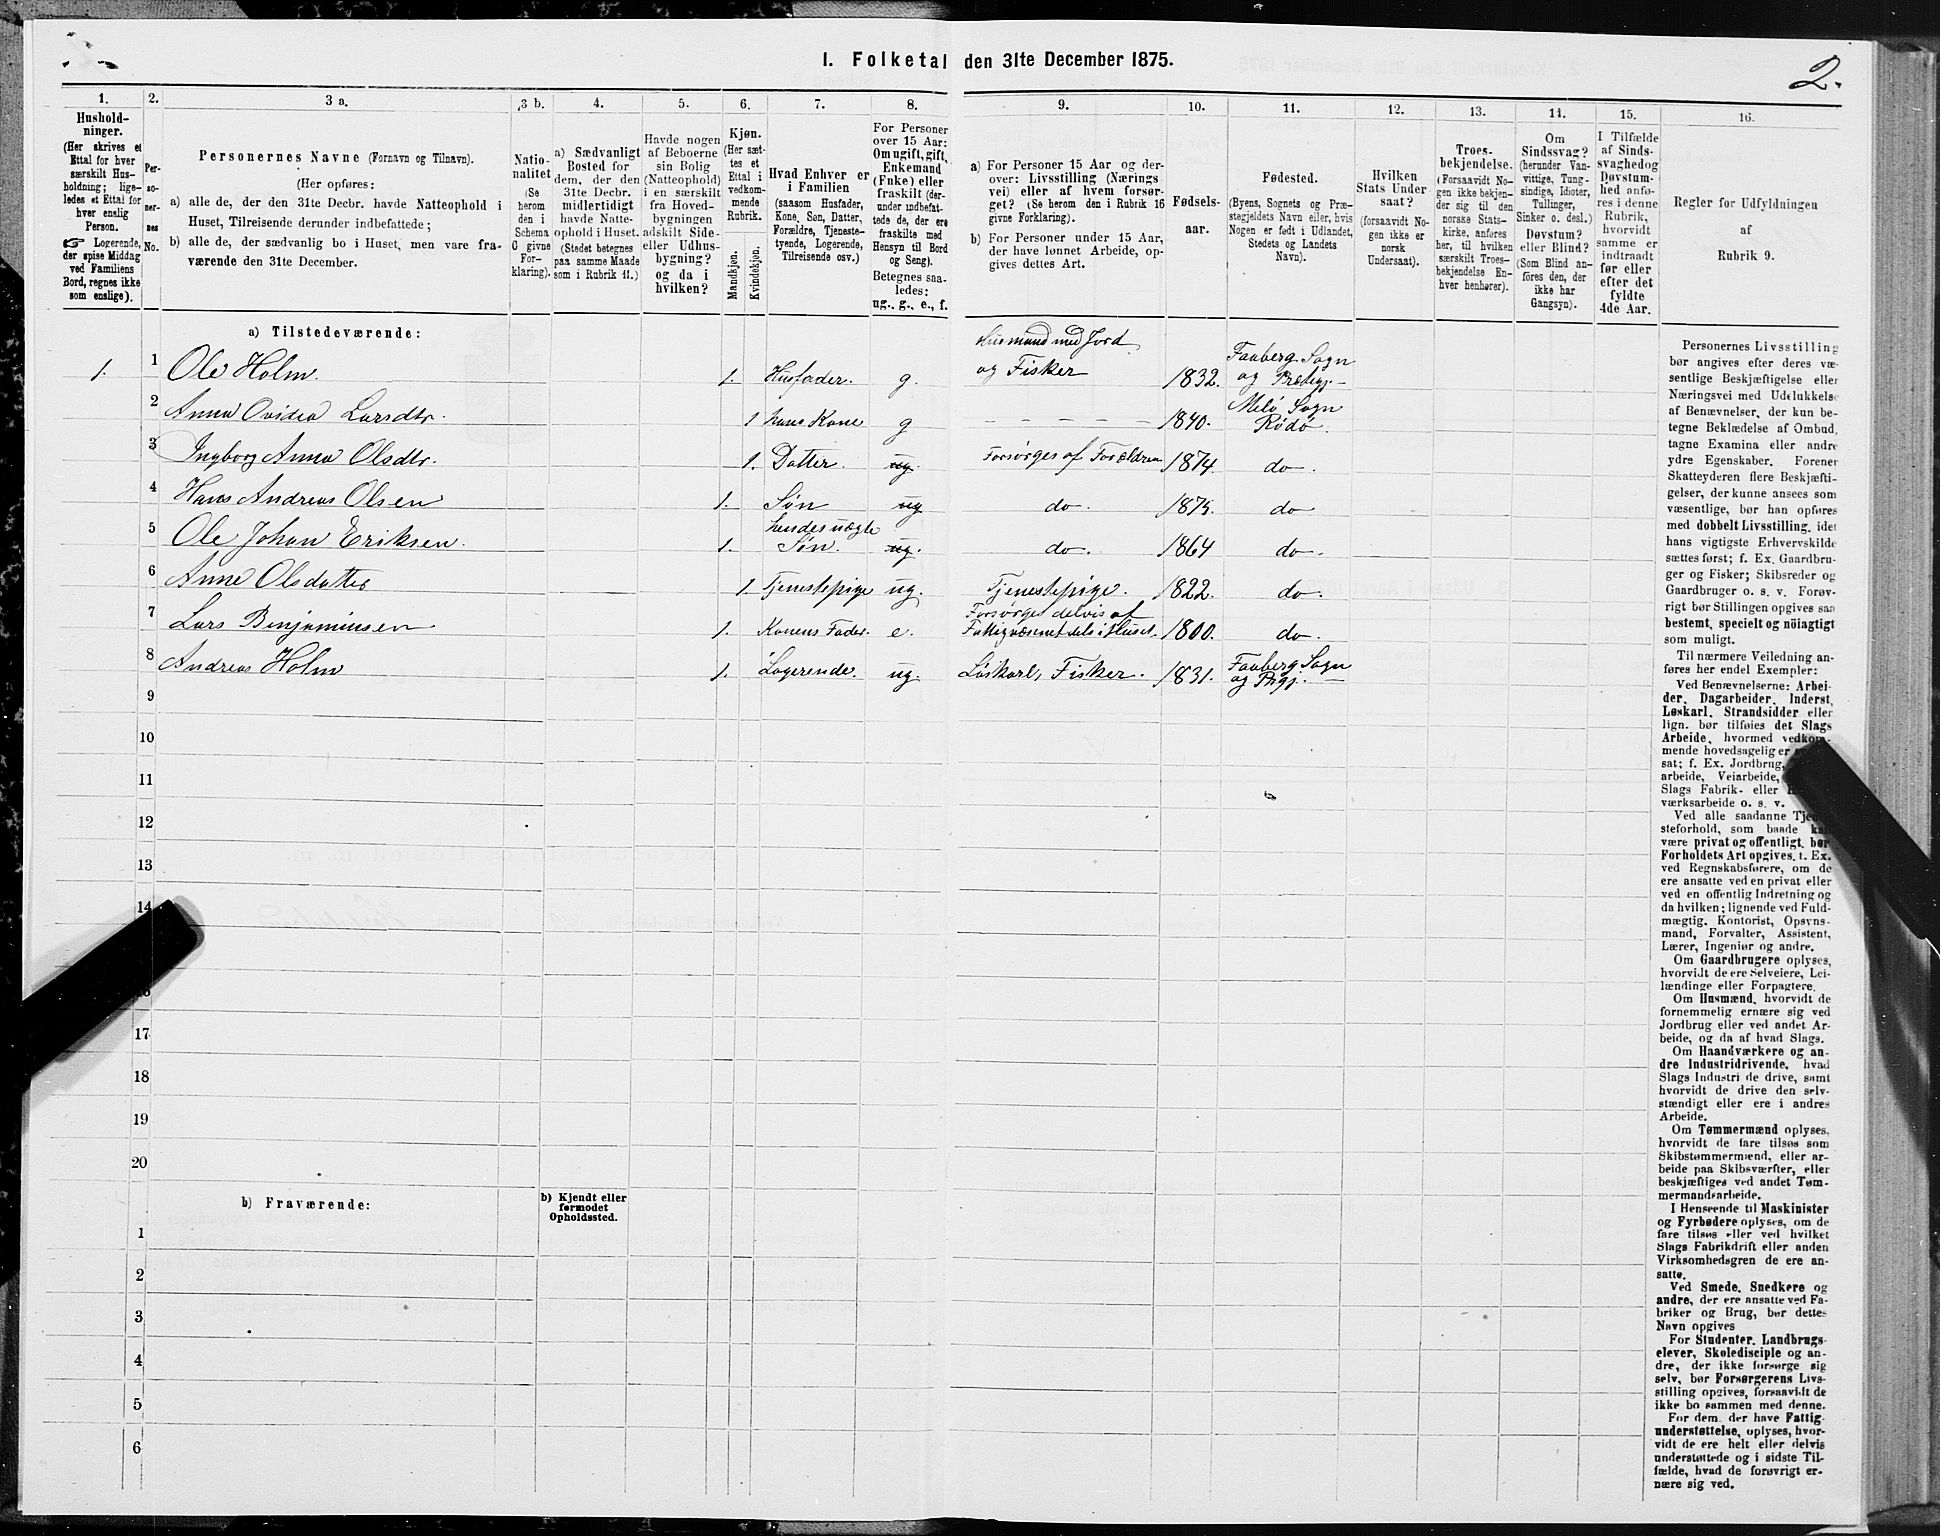 1. Folketal den 31te December 1875.
2.
1.
Hushold-
ninger.
(Her skrives et
Ettal for hver
særskilt Hus-
holdning; lige-
ledes et Ettal for
hver enslig
Person.
☞ Logerende,
der spise Middag
ved Familiens
Bord, regnes ikke
som enslige).
2.
Per-
so-
ner-
nes
No.
3 a.
Personernes Navne (Fornavn og Tilnavn).
(Her opføres:
a) alle de, der den 31te Decbr. havde Natteophold i
Huset, Tilreisende derunder indbefattede;
b) alle de, der sædvanlig bo i Huset, men vare fra-
værende den 31te December.
3 b.
Natio-
nalitet
(Se
herom
den i
Schema
O givne
For-
klaring).
4.
a) Sædvanligt
Bosted for
dem, der den
31te Decbr.
midlertidigt
havde Natte-
ophold i Huset.
(Stedet betegnes
paa samme Maade
som i Rubrik 11.)
5.
Havde nogen
af Beboerne
sin Bolig
(Natteophold)
i en særskilt
fra Hoved-
bygningen
adskilt Side-
eller Udhus-
bygning?
og da i
hvilken?
6.
Kjøn.
(Her sæt-
tes et
Ettal i
vedkom-
mende
Rubrik.
Mandkjøn.
Kvindekjøn.
7.
Hvad Enhver er
i Familien
(saasom Husfader,
Kone, Søn, Datter,
Forældre, Tjeneste-
tyende, Logerende,
Tilreisende osv.)
8.
For Personer
over 15 Aar:
Om ugift, gift,
Enkemand
(Enke) eller
fraskilt (der-
under indbefat-
tede de, der ere
fraskilte med
Hensyn til Bord
og Seng).
Betegnes saa-
ledes:
ug., g., e., f.
9.
a) For Personer 15 Aar og der-
over: Livsstilling (Nærings
vei) eller af hvem forsør-
get? (Se herom den i Rubrik 16
givne Forklaring).
b) For Personer under 15 Aar,
der have lønnet Arbeide, op-
gives dettes Art.
10.
Fødsels-
aar.
11.
Fødested.
(Byens, Sognets og Præ-
stegjeldets Navn eller, hvis
Nogen er født i Udlandet,
Stedets og Landets
Navn).
12.
Hvilken
Stats Under
saat?
(forsaavidt No-
gen ikke er
norsk
Undersaat).
13.
Troes-
bekjendelse.
(Forsaavidt No-
gen ikke bekjen-
der sig til den
norske Stats-
kirke, anføres
her, til hvilken
særskilt Troes-
bekjendelse En-
hver henhører).
14.
Om
Sindssvag?
(herunder Van-
vittige, Tung-
sindige, Idioter,
Tullinger,
Sinker o. desl.)
Døvstum?
eller Blind?
(Som Blind an-
føres den, der
ikke har
Gangsyn).
15.
I Tilfælde
af Sinds-
svaghed og
Døvstum-
hed anfø-
res i denne
Rubrik,
hvorvidt
samme er
indtraadt
før eller
efter det
fyldte
4de Aar.
16.
Regler for Udfyldningen
af
Rubrik 9.
a) Tilstedeværende:
1. 1 Ole Holm. 1. Husfader. g. Husmand med Jord og Fisker 1832. Faaberg Sogn og Præstegj.
2 Anna Ovidea Larsdtr. 1 hans Kone g - - - - - 1840. Melö Sogn Rödö.
3 Ingborg Anna Olsdtr. 1. Datter. ug. Forsörges af Forældren 1874 do.
4 Hans Andreas Olsen 1. Sön ug do. 1875. do
5 Ole Johan Eriksen. 1. hendes uægte Sön. ug. do. 1864 do.
6 Anne Olsdatter 1. Tjenestepige ug. Tjenestepige. 1822. do.
7 Lars Benjaminsen 1. Konens Fader. e. Forsörges delvis af Fattigvæsenet dels i Huset. 1800. do.
8 Andreas Holm 1. Logerende. ug. Löskarl, Fisker. 1831. Faaberg Sogn og Prgj.
9
10
11
12
13
14
17
18
19
20
b) Fraværende:
b) Kjendt eller
formodet
Opholdssted.
1
2
3
4
5
6
Personernes Livsstilling
bør angives efter deres væ-
sentlige Beskjæftigelse eller
Næringsvei med Udelukkelse
af Benævnelser, der kun be-
tegne Beklædelse af Ombud,
tagne Examina eller andre
ydre Egenskaber. Forener
Skatteyderen flere Beskjæfti-
gelser, der kunne ansees som
væsentlige, bør han opføres
med dobbelt Livsstilling, idet
hans vigtigste Erhvervskilde
sættes først; f. Ex. Gaardbru-
ger og Fisker; Skibsreder og
Gaardbruger o. s. v. Forøv-
rigt bør Stillingen opgives saa
bestemt, specielt og nöiagtigt
som muligt.
Til nærmere Veiledning an-
føres her endel Exempler:
Ved Benævnelserne: Arbei-
der, Dagarbeider, Inderst,
Løskarl, Strandsidder eller
lign. bør tilføies det Slags
Arbeide, hvormed vedkom-
mende hovedsagelig er
sat; f. Ex. Jordbrug,
arbeide, Veiarbeide,
Slags Fabrik- eller
værksarbeide o. s. v.
Ved alle saadanne Tjene-
steforhold, som baade kan
være privat og offentligt, bør
Forholdets Art opgives, t. Ex.
ved Regnskabsførere, om de
ere ansatte ved en privat eller
ved en offentlig Indretning og
da hvilken; lignende ved Fuld-
mægtig, Kontorist, Opsyns-
mand, Forvalter, Assistent,
Lærer, Ingeniør og andre.
Om Gaardbrugere oplyses,
hvorvidt de ere Selveiere, Lei-
lændinge eller Forpagtere.
Om Husmænd, hvorvidt de
fornemmelig ernære sig ved
Jordbrug eller ved andet Ar-
beide, og da af hvad Slags.
Om Haandværkere og an-
dre Industridrivende, hvad
Slags Industri de drive, samt
hvorvidt de drive den selv-
stændigt eller ere i andres
Arbeide.
Om Tømmermænd oplyses,
hvorvidt de fare tilsøs som
Skibstømmermænd, eller ar-
beide paa Skibsværfter, eller
beskjæftiges ved andet Tøm-
mermandsarbeide.
I Henseende til Maskinister
og Fyrbødere oplyses, om de
fare tilsøs eller ved hvilket
Slags Fabrikdrift eller anden
Virksomhedsgren de ere an-
satte.
Ved Smede, Snedkere og
andre, der ere ansatte ved Fa-
briker og Brug, bør dettes
Navn opgives
For Studenter, Landbrugs-
elever, Skoledisciple og an-
dre, der ikke forsørge sig
selv, bør Forsørgerens Livs-
stilling opgives, forsaavidt de
ikke bo sammen med denne.
For dem, der have Fattig-
understøttelse, oplyses, hvor-
vidt de ere helt eller delvis
understøttede og i sidste Til-
fælde, hvad de forøvrigt er-
nære sig ved.